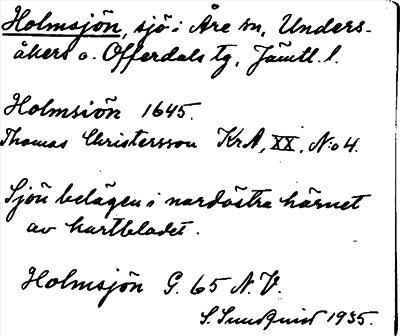 Holmsjön, sjö i Åre sn, Unders-
åkers o. Offerdals tg, Jämtl. l.
Holmsiön 1645.
Thomas Christersson KrA, XX, No 4.
Sjön belägen i nordöstra hörnet
av kartbladet.
Holmsjön G. 65 N.V.
S. Sundquist 1935.